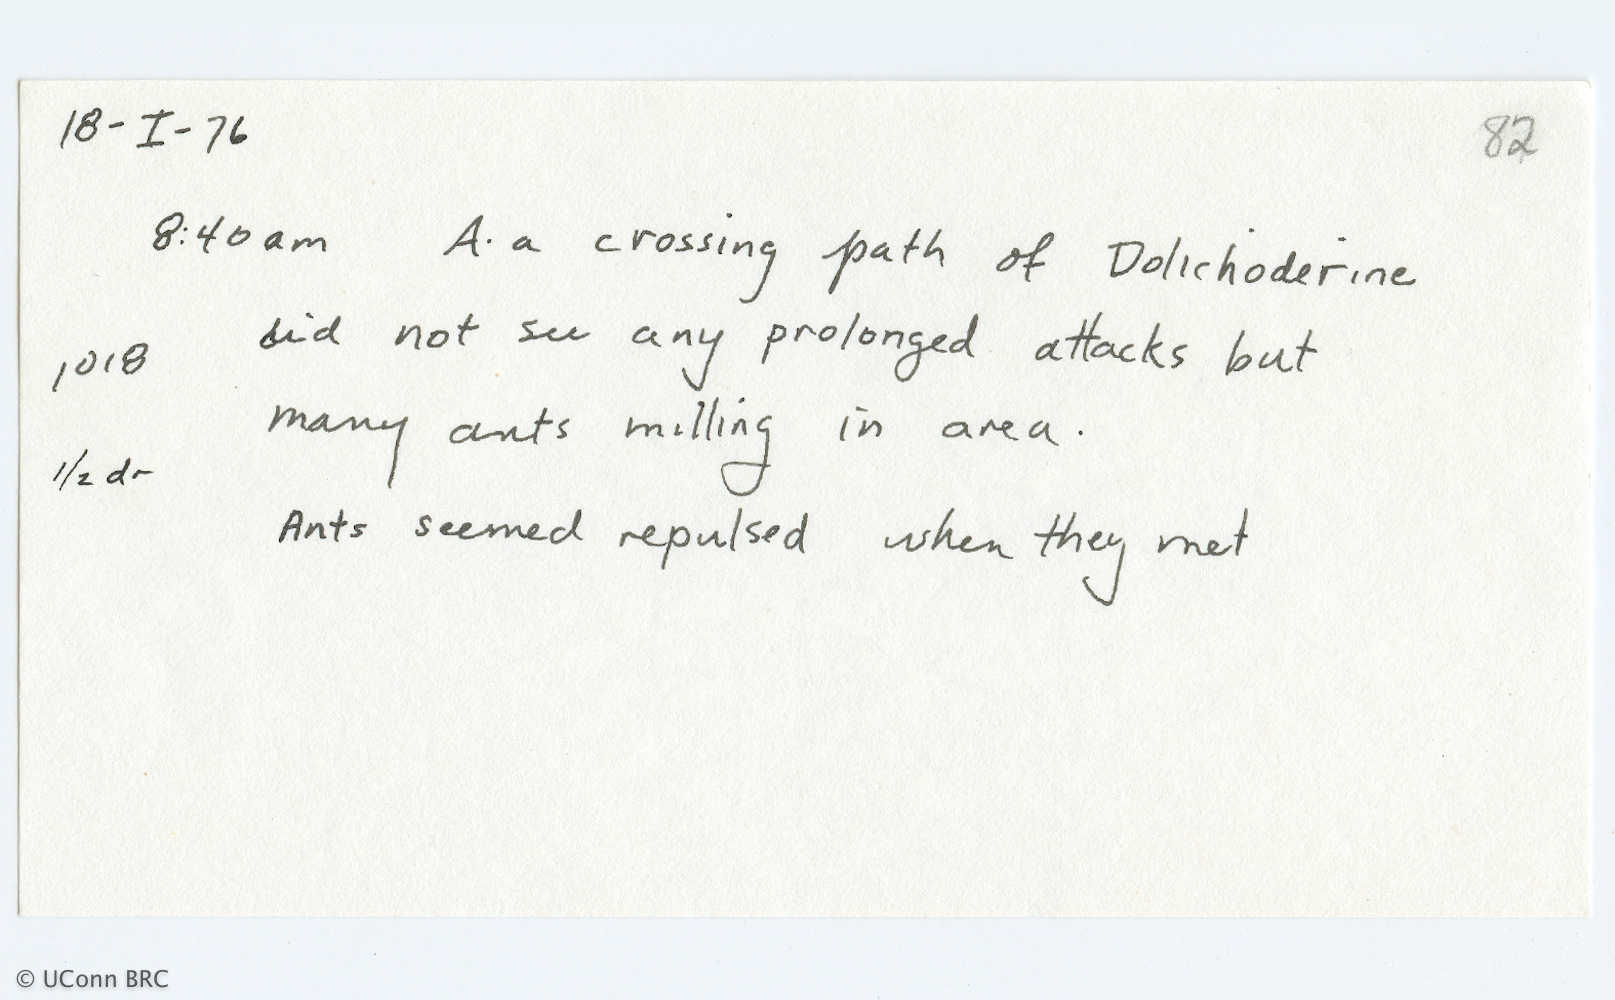 18-I-76
82
8:40 am A. a crossing path of Dolichoderine
did not see any prolonged attacks but
1018
many ants milling in area.
1/2 dr
Ants seemed repulsed when they met
© UConn BRC